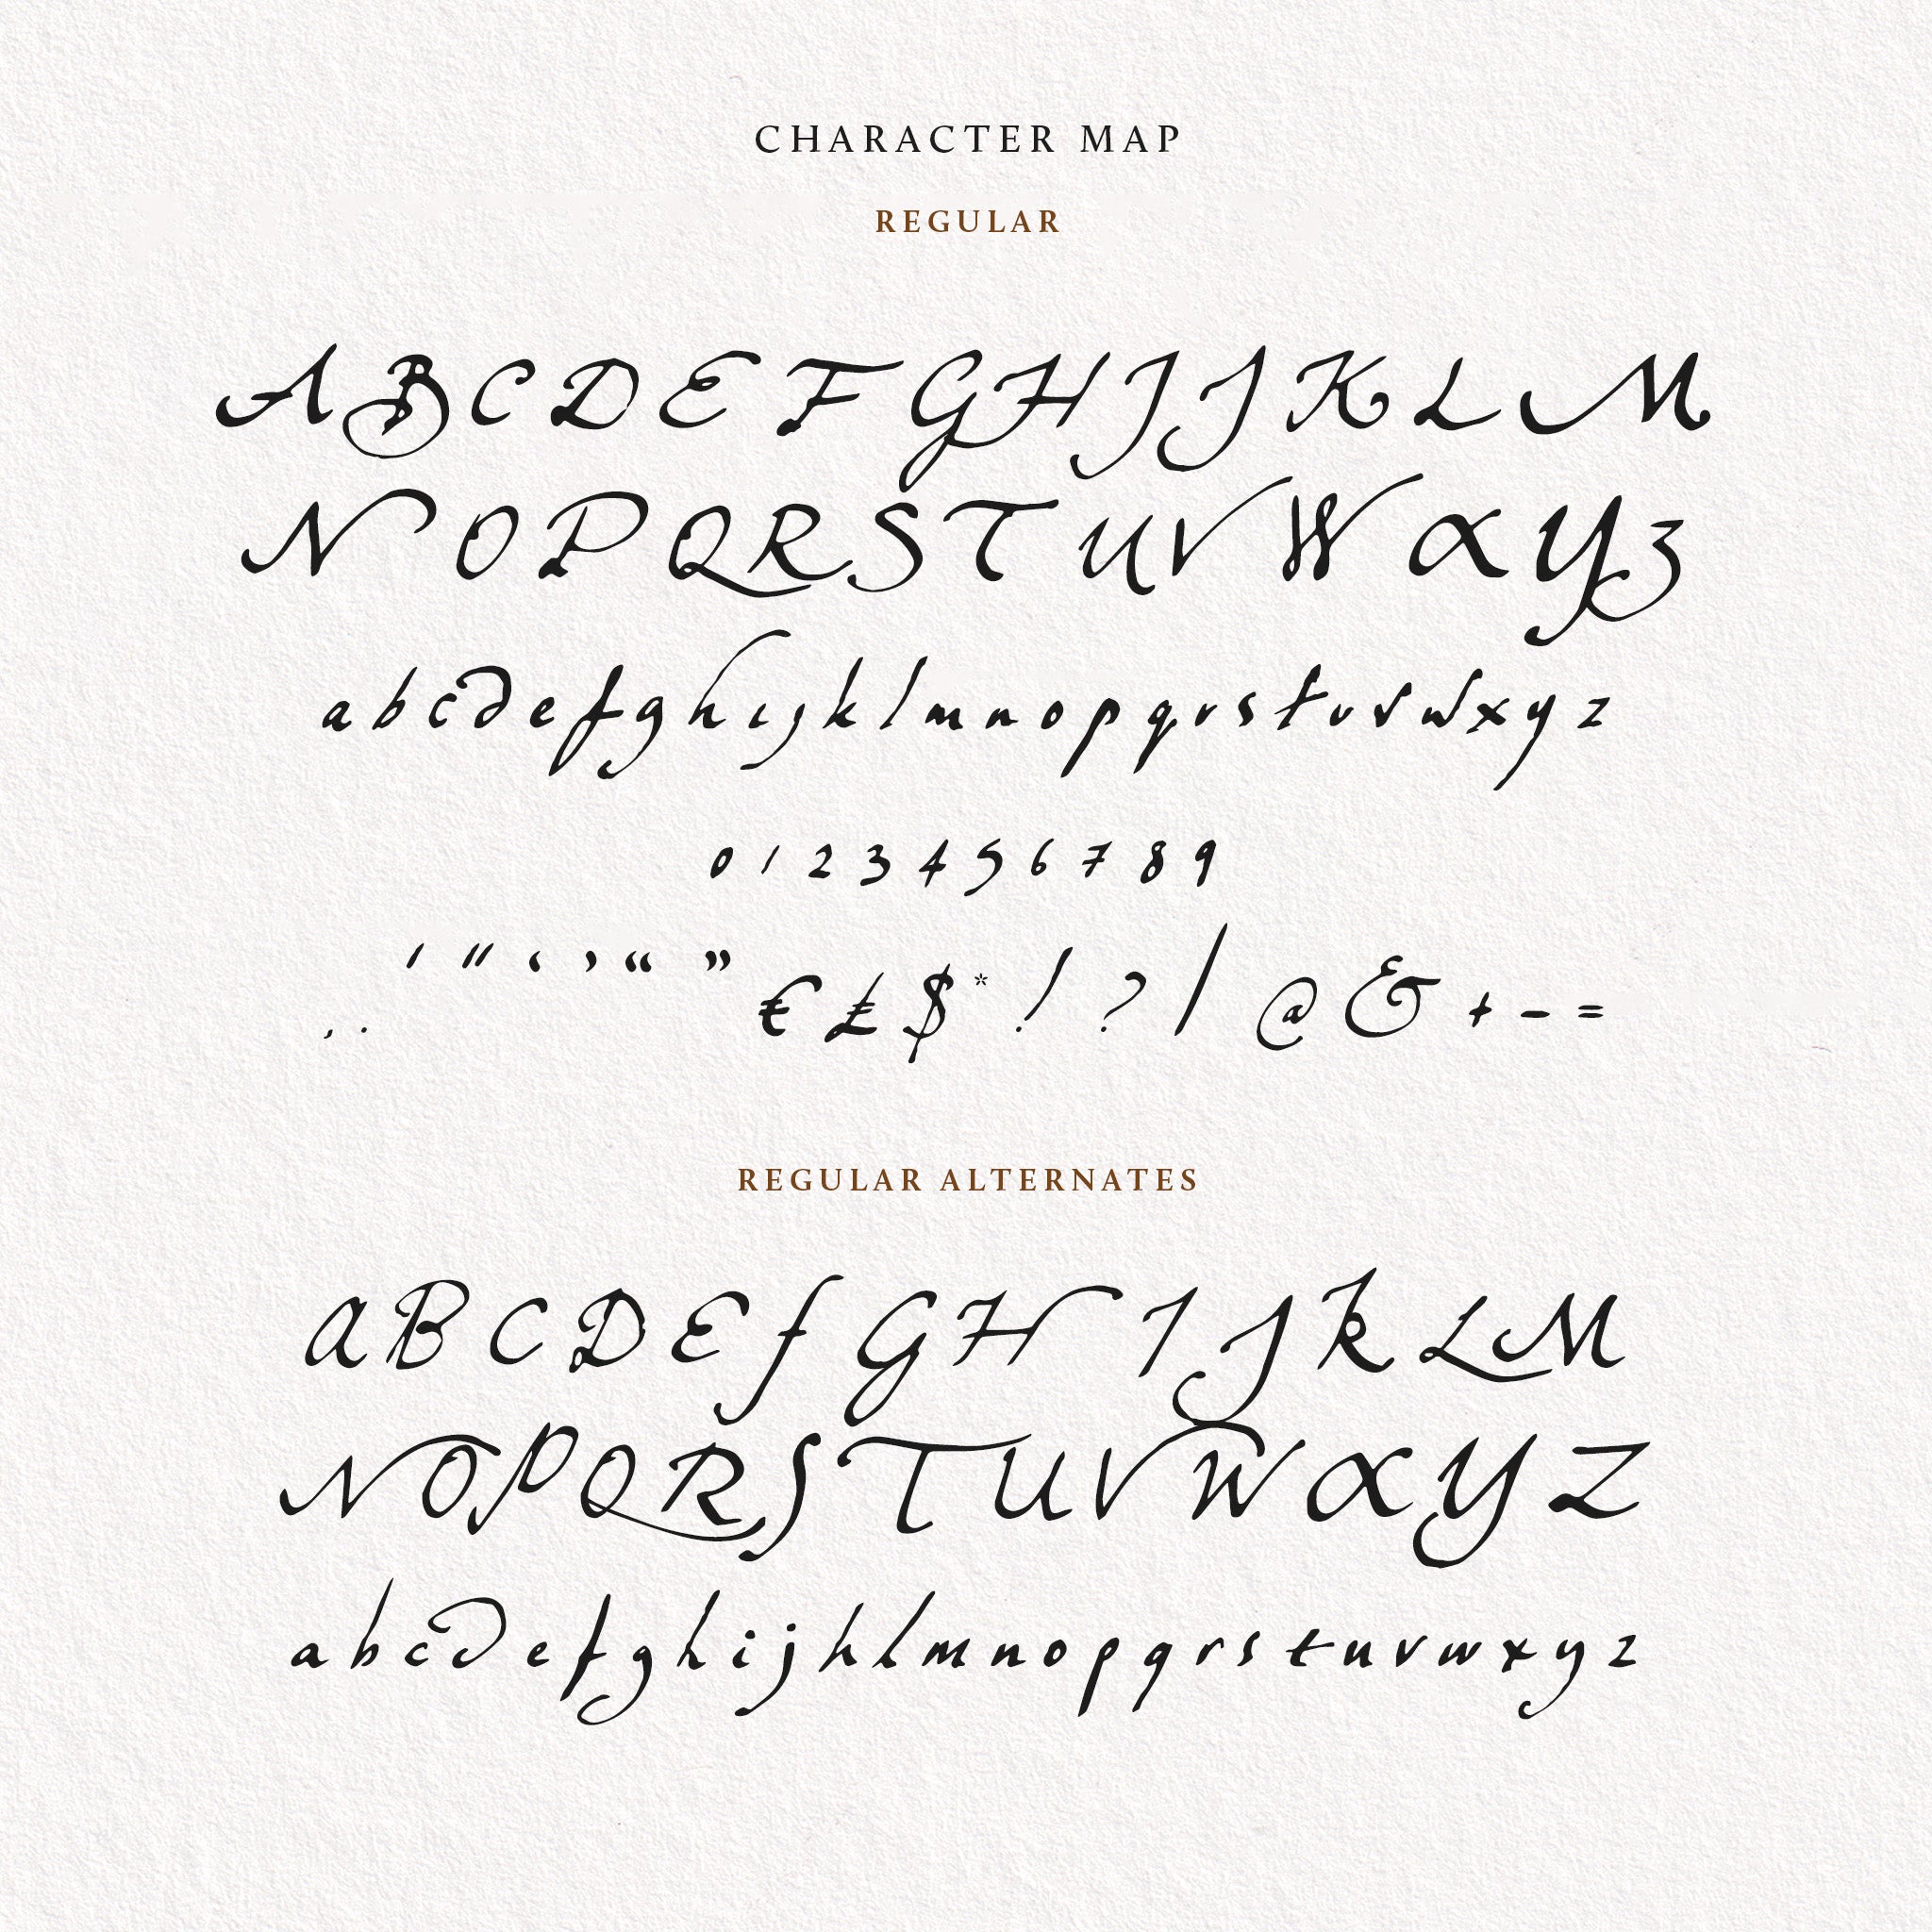 CHARACTER MAP
REGULAR
A B C D E F G H I J K L M
N O P Q R S T U V W X Y Z
a b c d e f g h i j k l m n o p q r s t u v w x y z
0 1 2 3 4 5 6 7 8 9
, . ' " ‘ ’ “ ” € £ $ * ! ? / @ & + - =
REGULAR ALTERNATES
A B C D E F G H I J K L M
N O P Q R S T U V W X Y Z
a b c d e f g h i j k l m n o p q r s t u v w x y z